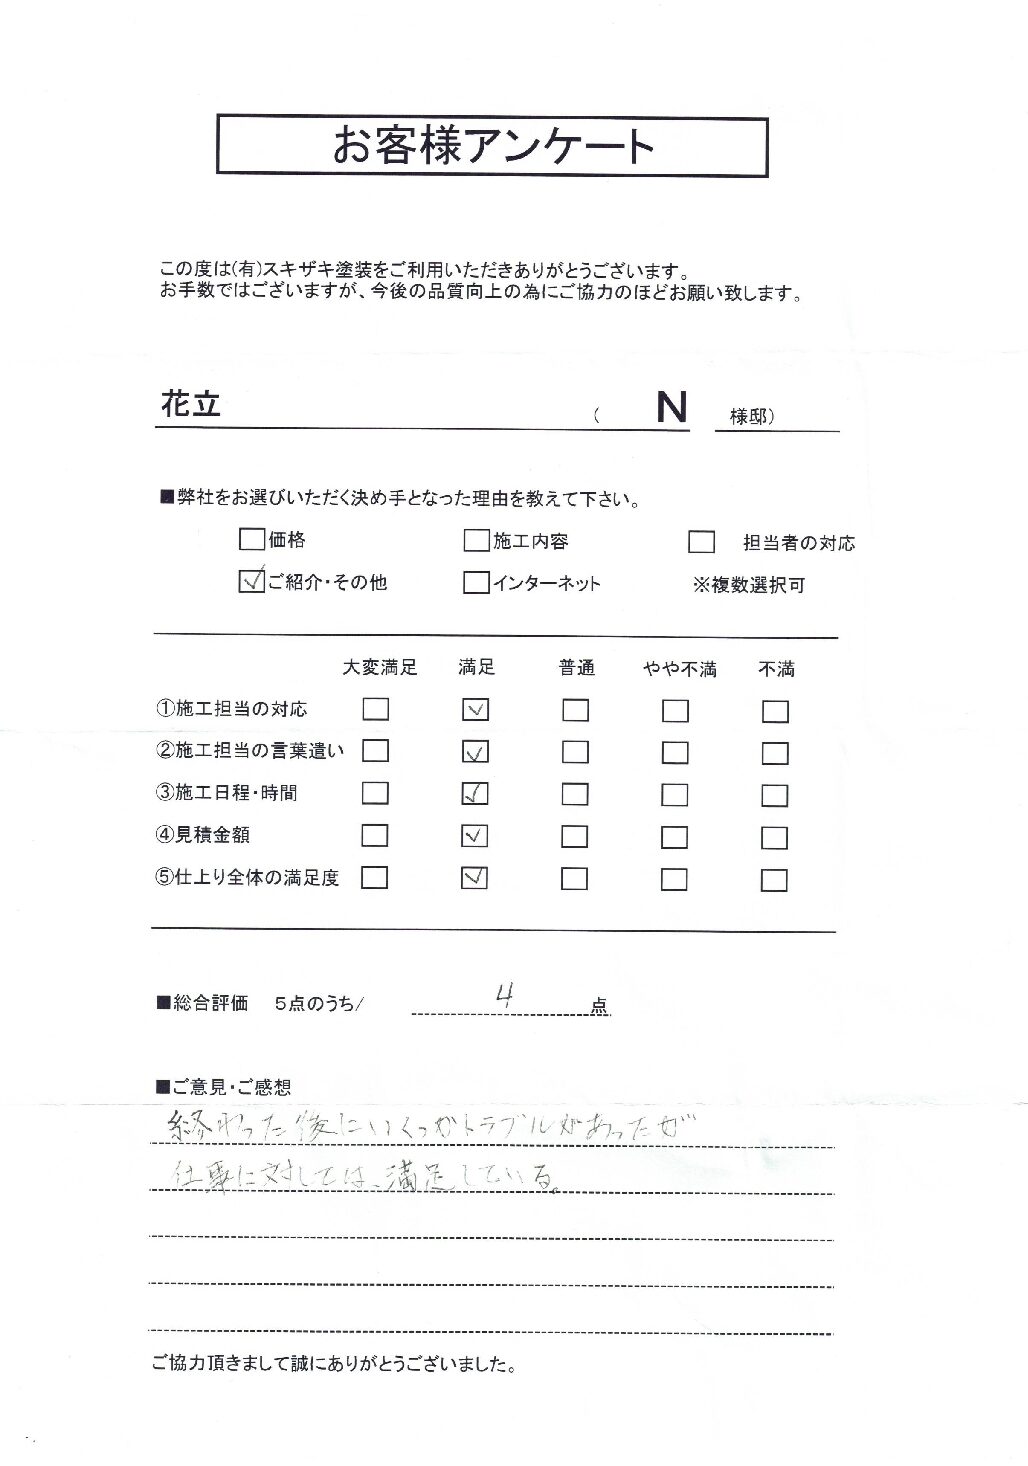 お客様アンケート
この度は(有)スキザキ塗装をご利用いただきありがとうございます。
お手数ではございますが、今後の品質向上の為にご協力のほどお願い致します。
花立 ( N 様邸)
■弊社をお選びいただく決め手となった理由を教えて下さい。
□価格 □施工内容 □ 担当者の対応
☑ご紹介・その他 □インターネット ※複数選択可
大変満足 満足 普通 やや不満 不満
①施工担当の対応 □ ☑ □ □ □
②施工担当の言葉遣い □ ☑ □ □ □
③施工日程・時間 □ ☑ □ □ □
④見積金額 □ ☑ □ □ □
⑤仕上り全体の満足度 □ ☑ □ □ □
■総合評価 5点のうち/ 4 点
■ご意見・ご感想
終わった後にいくつかトラブルがあったが
仕事に対しては、満足している。
ご協力頂きまして誠にありがとうございました。